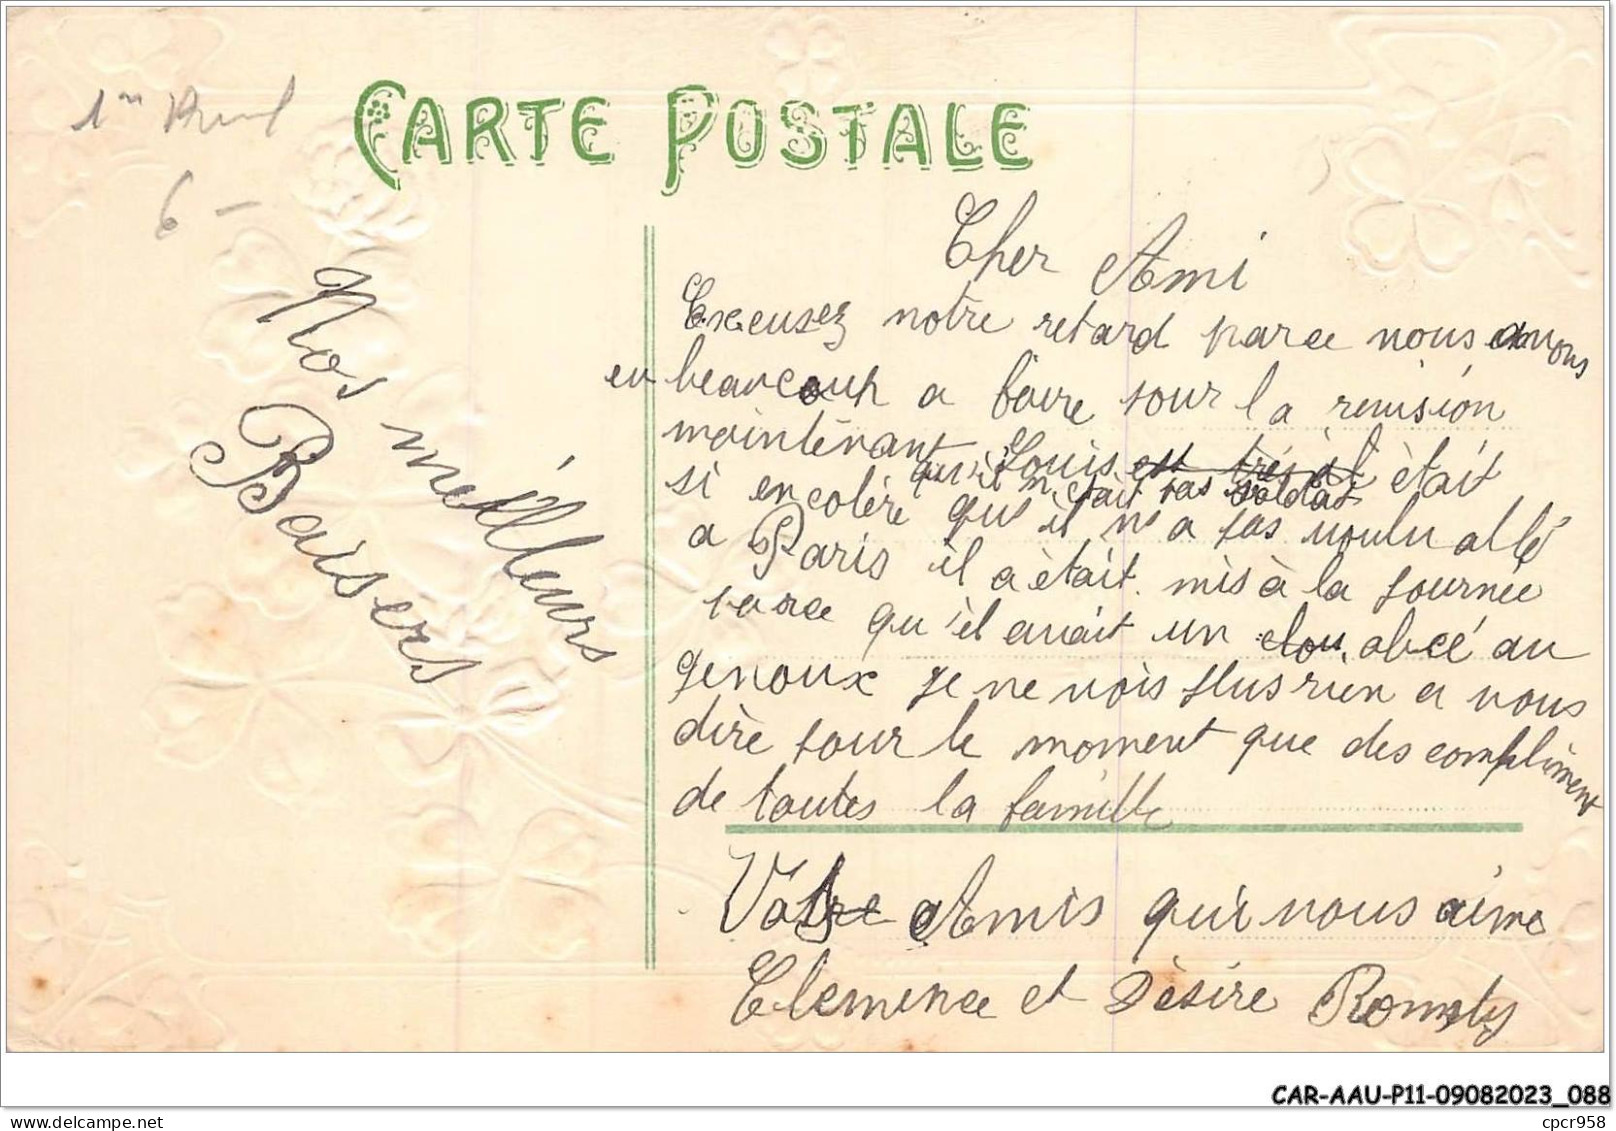 1er Avril
6 -
CARTE POSTALE
5
Nos meilleurs
Baisers
Cher Ami
Excusez notre retard parce nous avons
eu beaucoup a faire pour la revision
maintenant Louis est très il ètait
qu'il n'ètait pas soldat
si en colère qu'il n'a pas voulu allé
a Paris il a ètait mis à la journèe
parce qu'il avait un clou abcé au
genoux je ne vois plus rien a vous
dire pour le moment que des compliment
de toutes la famille
Votre Amis qui vous aime
Clemence et Dèsire
CAR-AAU-P11-09082023_088
delcampe.net
cpcr958